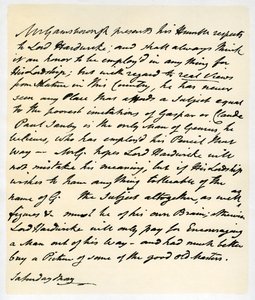 Mr Gainsborough presents his Humble respects
to Lord Hardwicke; and shall always think
it an honor to be employ'd in any thing for
his Lordship; but with regard to real Views
from Nature in this Country, he has never
seen any Place that affords a Subject equal
to the poorest imitations of Gaspar or Claude.
Paul Sanby is the only Man of Genius, he
believes, who has employ'd his Pencil that
way — Mr G. hopes Lord Hardwicke will
not mistake his meaning, but if his Lordship
wishes to have any thing tollerable of the
name of G. the Subject altogether, as well as
figures &c must be of his own Brain; otherwise
Lord Hardwicke will only pay for Encouraging
a Man out of his Way — and had much better
buy a Picture of some of the good old Masters.
Saturday Morg